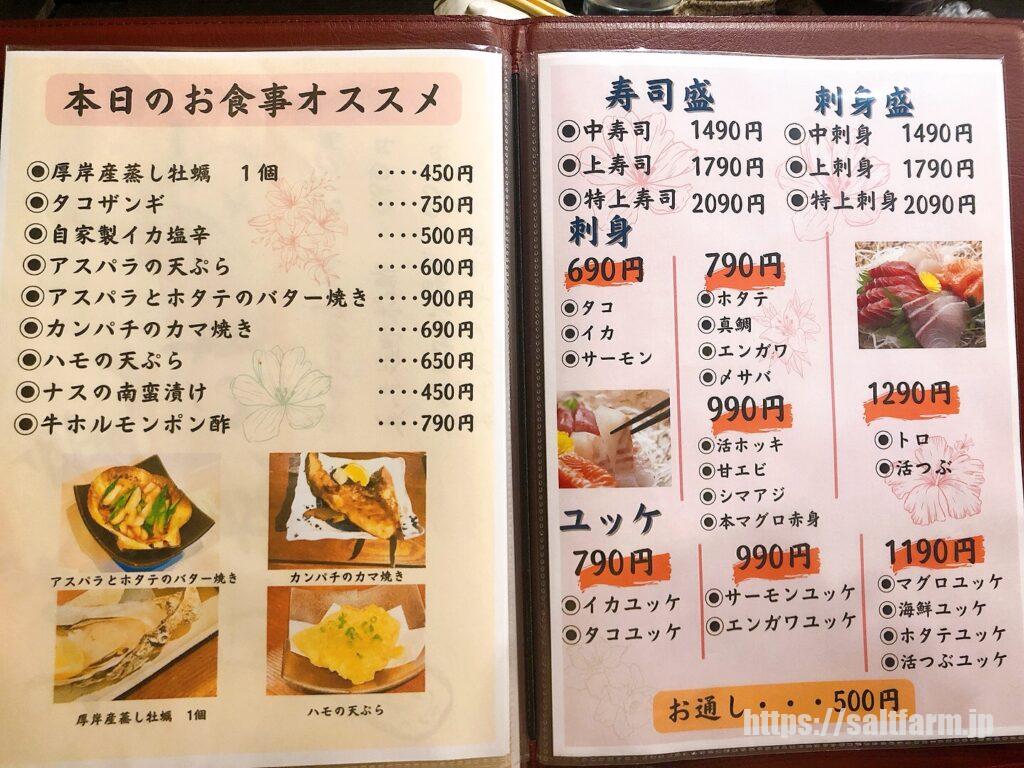 本日のお食事オススメ
◉厚岸産蒸し牡蠣　1個 ････450円
◉タコザンギ ････750円
◉自家製イカ塩辛 ････500円
◉アスパラの天ぷら ････600円
◉アスパラとホタテのバター焼き ････900円
◉カンパチのカマ焼き ････690円
◉ハモの天ぷら ････650円
◉ナスの南蛮漬け ････450円
◉牛ホルモンポン酢 ････790円
アスパラとホタテのバター焼き
カンパチのカマ焼き
厚岸産蒸し牡蠣　1個
ハモの天ぷら
寿司盛
◉中寿司 1490円
◉上寿司 1790円
◉特上寿司 2090円
刺身盛
◉中刺身 1490円
◉上刺身 1790円
◉特上刺身 2090円
刺身
690円
◉タコ
◉イカ
◉サーモン
790円
◉ホタテ
◉真鯛
◉エンガワ
◉〆サバ
990円
◉活ホッキ
◉甘エビ
◉シマアジ
◉本マグロ赤身
1290円
◉トロ
◉活つぶ
ユッケ
790円
◉イカユッケ
◉タコユッケ
990円
◉サーモンユッケ
◉エンガワユッケ
1190円
◉マグロユッケ
◉海鮮ユッケ
◉ホタテユッケ
◉活つぶユッケ
お通し・・・500円
https://saltfarm.jp